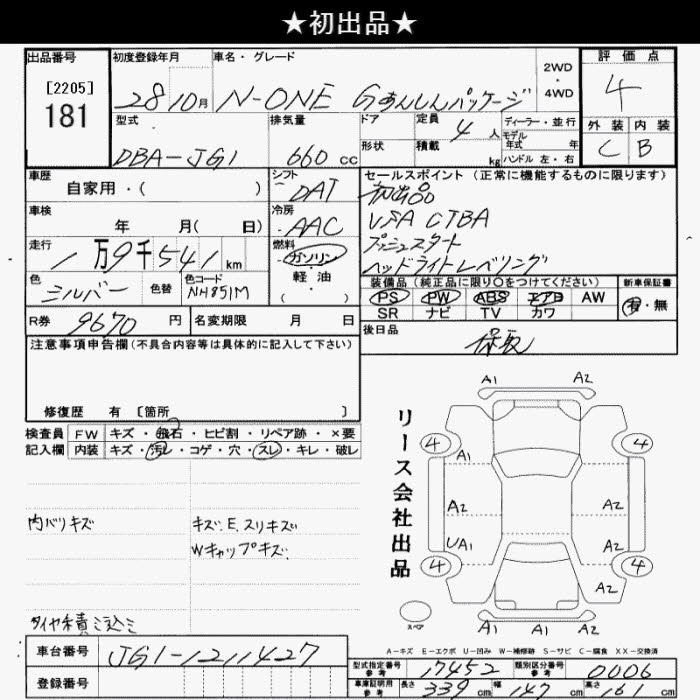 ★初出品★
出品番号
[2205]
181
初度登録年月
28 10月
車名・グレード
N-ONE Gあんしんパッケージ
2WD
・
4WD
評価点
4
外装 内装
C B
型式
DBA-JG1
排気量
660 cc
ドア
形状
定員
4 人
積載
kg
ディーラー・並行
モデル
年式 年
ハンドル 左・右
車歴
自家用・( )
シフト
DAT
車検
年 月( 日)
冷房
AAC
走行
1万9千541km
燃料
ガソリン
・
軽・油
( )
色
シルバー
色替
色コード
NH851M
セールスポイント(正常に機能するものに限ります)
初出品
VSA CTBA
プッシュスタート
ヘッドライトレベリング
装備品(純正品に限り○をつけてください)
PS PW ABS エアB AW
SR ナビ TV カワ
新車保証書
有・無
R券
9670 円
名変期限 月 日
後日品
保取
注意事項申告欄(不具合内容等は具体的に記入して下さい)
修復歴 有 [箇所 ]
検査員
記入欄
FW キズ・飛石・ヒビ割・リペア跡・×要
内装 キズ・汚レ・コゲ・穴・スレ・キレ・破レ
内バリキズ
キズ、E、スリキズ
Wキャップキズ
タイヤ積ミ込ミ
リース会社出品
A1 A2
4 4
A1
A2 A2
UA1 A2
4 4
A2
A1 A1 A2
スペア
A-キズ E-エクボ U-凹み W-補修跡 S-サビ C-腐食 XX-交換済
車台番号
JG1-1211427
登録番号
型式指定番号
参考
17452
類別区分番号
参考
0006
車庫証明用
参考
長さ 339 cm 幅 147 cm 高さ 161 cm